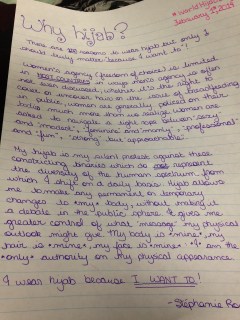 #worldhijab
February 1,
Why hijab?
There are 100 reasons to wear hijab but only 1
should truly matter: because I want to!
Women's agency (freedom of choice) is limited
in most countries
is often
not even discussed, whether it's the
case of
in public, women are generally policed on their
bodies much more than we realize. Women are
asked to navigate a tight rope between "sexy"
and "modest", "feminine" and "manly", "professional"
and "fun", "strong" but "approachable".
My hijab is my silent protest against these
constructing binaries which do not represent
the diversity of the human spectrum, from
which I shift on a daily basis. Hijab allows
me to make any permanent or temporary
changes to *my* body, without making it
a debate in the public sphere. It gives me
greater control of what "message" my physical
outlook might give. My body is *mine*, my
hair is *mine*, my face is *mine*. *I* am the
*only* authority on my physical appearance.
I wear hijab because I WANT TO!
- Stéphanie